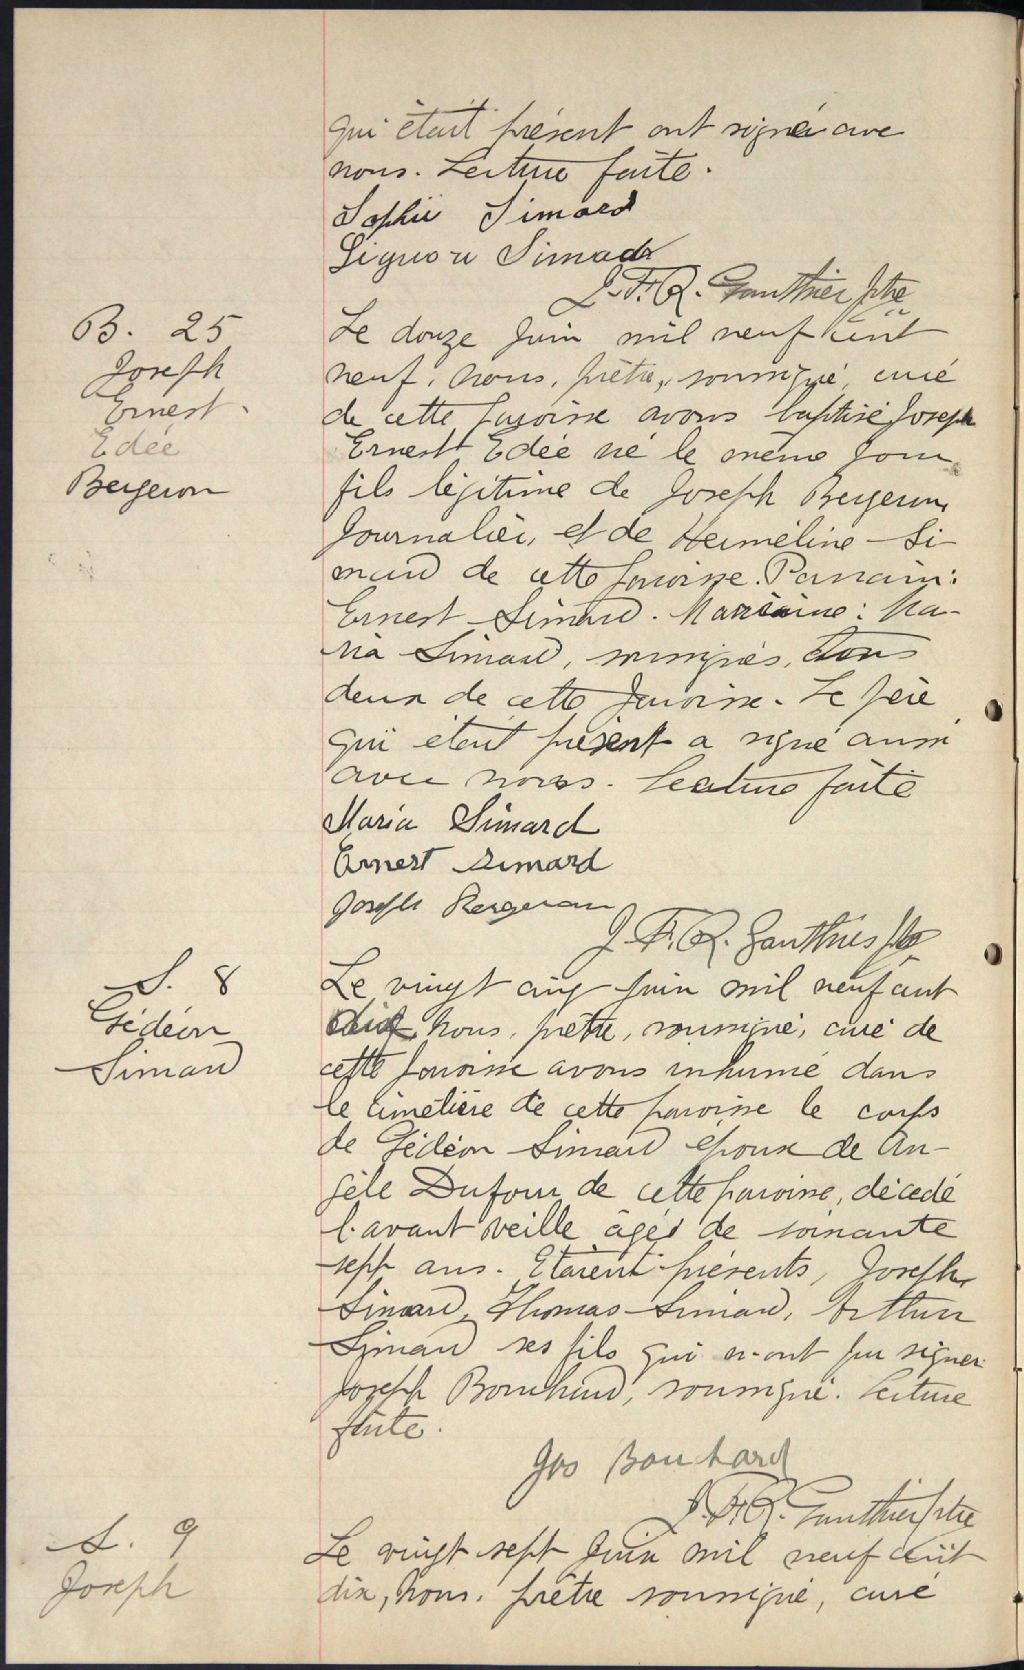 qui était présent ont signé avec
nous. Lecture faite.
Sophie Simard
Liguori Simard
J.F.R. Gauthier ptre
B. 25
Joseph
Ernest
Edée
Bergeron
Le douze juin mil neuf cent
neuf, nous, prêtre, soussigné, curé
de cette paroisse avons baptisé Joseph
Ernest Edée né le même jour
fils légitime de Joseph Bergeron,
Journalier, et de Herméline Si-
mard de cette paroisse. Parrain:
Ernest Simard. Marraine: Ma-
ria Simard, soussignés, tous
deux de cette paroisse. Le père
qui était présent a signé aussi
avec nous. Lecture faite
Maria Simard
Ernest Simard
Joseph Bergeron
J.F.R. Gauthier ptre
S. 8
Gédéon
Simard
Le vingt cinq juin mil neuf cent
nous, prêtre, soussigné, curé de
cette paroisse avons inhumé dans
le cimetière de cette paroisse le corps
de Gédéon Simard époux de An-
gèle Dufour de cette paroisse, décédé
l'avant veille âgé de soixante
sept ans. Etaient présents, Joseph
Simard, Thomas Simard, Arthur
Simard ses fils qui n'ont pu signer
Joseph Bouchard, soussigné. Lecture
faite.
Jos Bouchard
J.F.R. Gauthier ptre
S. 9
Joseph
Le vingt sept juin mil neuf cent
dix, nous, prêtre soussigné, curé